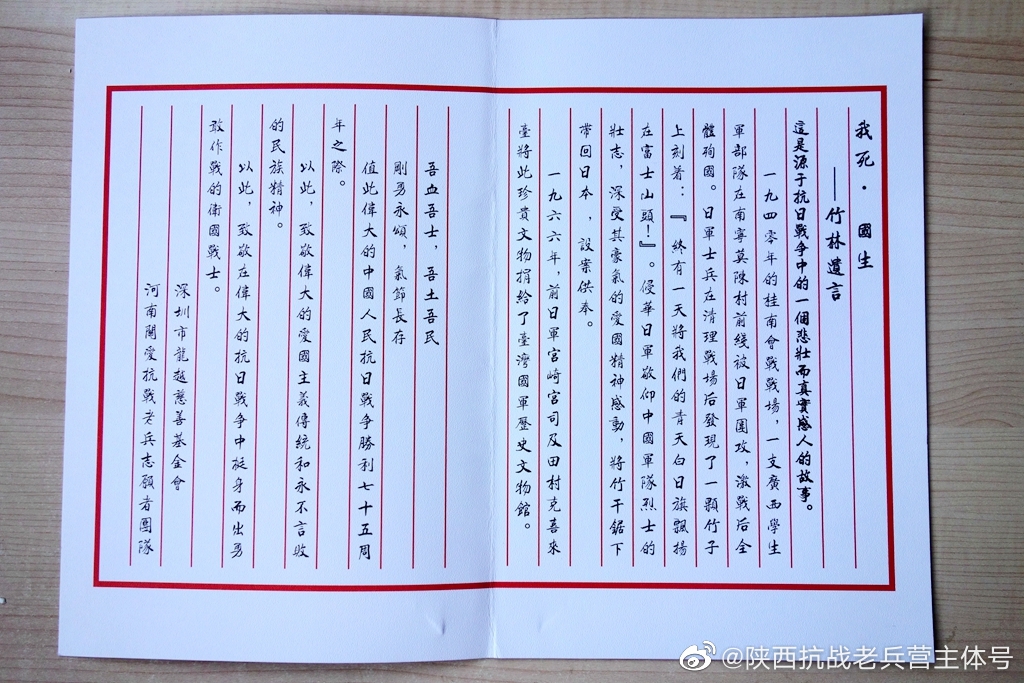 我死·國生
——竹林遺言
這是源于抗日戰争中的一個悲壯而真實感人的故事。
一九四零年的桂南會戰戰場，一支廣西學生
軍部隊在南寧莫陳村前綫被日軍圍攻，激戰后全
體殉國。日軍士兵在清理戰場后發現了一顆竹子
上刻着：『終有一天將我們的青天白日旗飄揚
在富士山頭！』。侵華日軍敬仰中國軍隊烈士的
壯志，深受其豪氣的愛國精神感動，將竹干鋸下
帶回日本，設案供奉。
一九六六年，前日軍宮崎宮司及田村克喜來
臺將此珍貴文物捐給了臺灣國軍歷史文物館。
吾血吾士，吾土吾民
剛勇永頌，氣節長存
值此偉大的中國人民抗日戰争勝利七十五周
年之際。
以此，致敬偉大的愛國主義傳統和永不言敗
的民族精神。
以此，致敬在偉大的抗日戰争中挺身而出勇
敢作戰的衛國戰士。
深圳市龍越慈善基金會
河南關愛抗戰老兵志願者團隊
@陕西抗战老兵营主体号